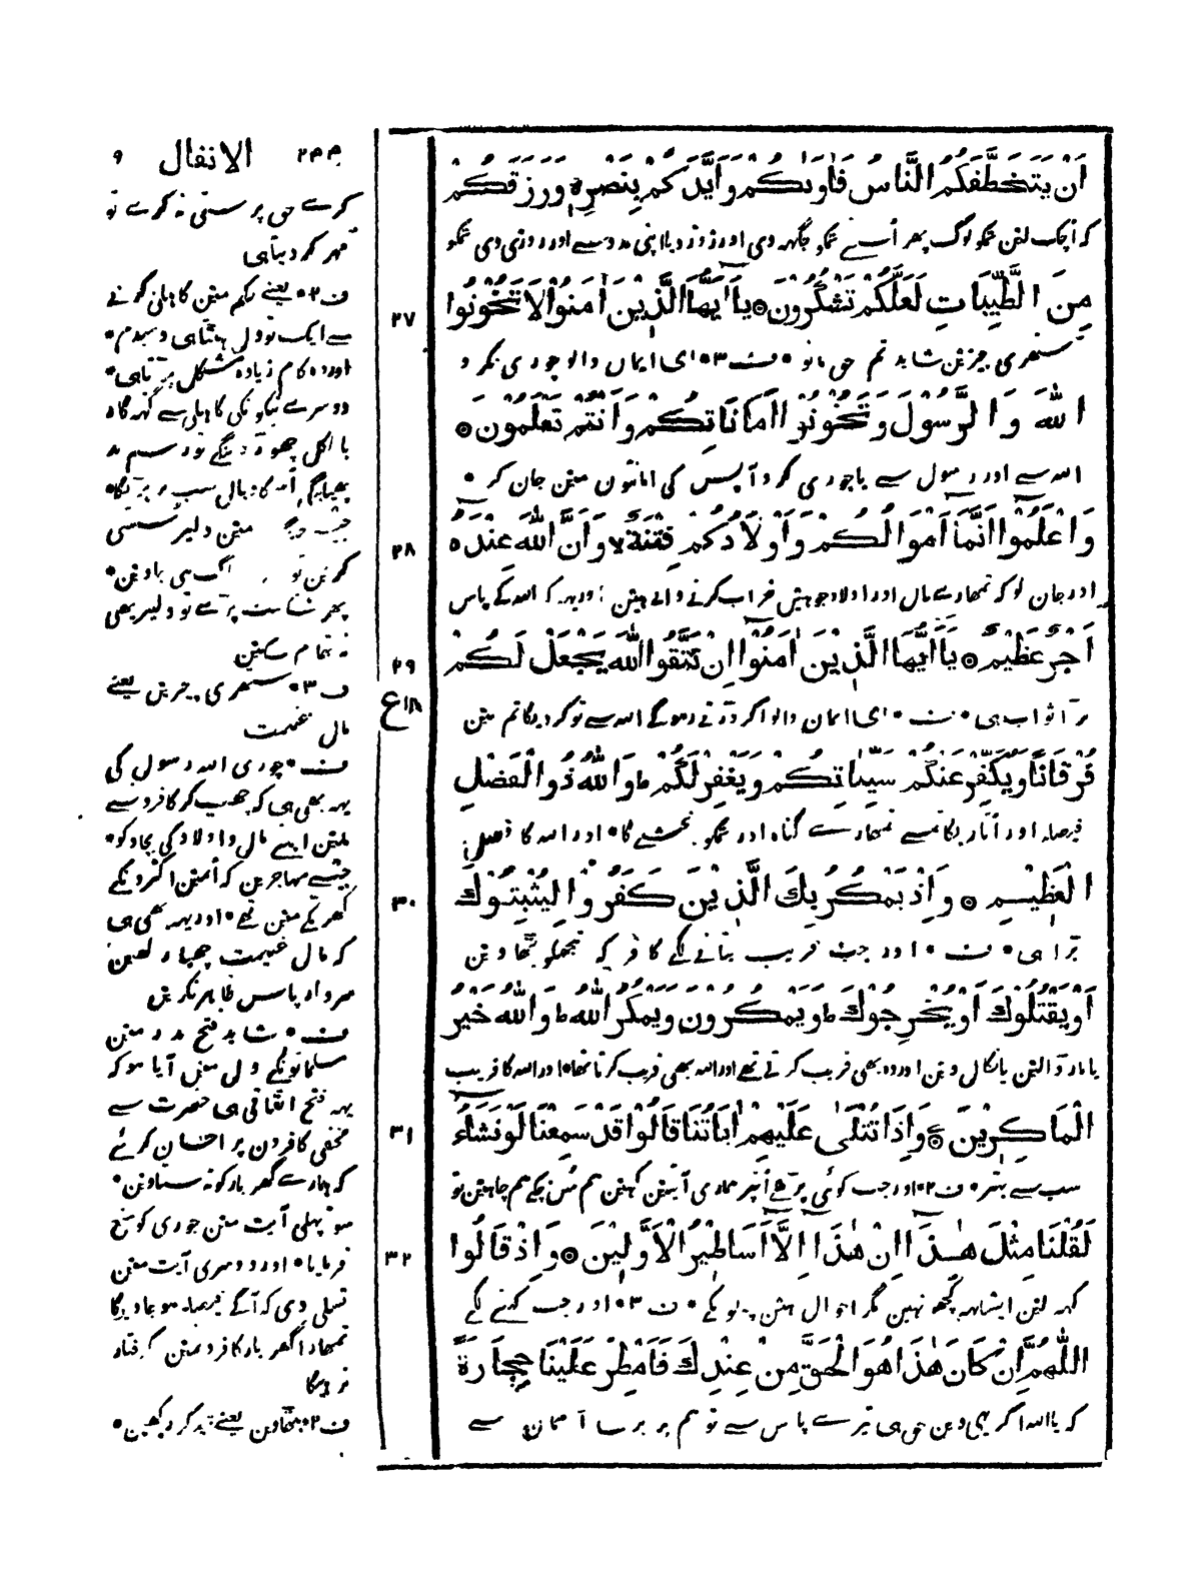 ٩ الانفال ٢٣٣
اَنْ يَتَخَطَّفَكُمُ النَّاسُ فَاٰوٰىكُمْ وَاَيَّدَكُمْ بِنَصْرِهٖ وَرَزَقَكُمْ
کہ اُچک لین تمکو لوگ پھر اُسنے تمکو جگہہ دی اور زور دیا اپنی مدد سے اور روزی دی تمکو
مِنَ الطَّيِّبَاتِ لَعَلَّكُمْ تَشْكُرُوْنَ ۞ يَا اَيُّهَا الَّذِيْنَ اٰمَنُوْا لَا تَخُوْنُوا
٢٧
ستھری چیزین شاید تم حق مانو • ف٣ • ای ایمان والو چوری نکرو
اللّٰهَ وَالرَّسُوْلَ وَتَخُوْنُوْا اَمَانَاتِكُمْ وَاَنْتُمْ تَعْلَمُوْنَ ۞
اللہ سے اور رسول سے یا چوری کرو آپس کی امانتون مین جان کر •
وَاعْلَمُوْا اَنَّمَا اَمْوَالُكُمْ وَاَوْلَادُكُمْ فِتْنَةٌ لا وَاَنَّ اللّٰهَ عِنْدَهٗ
٢٨
اور جان لو کہ تمھارے مال اور اولاد جو ہین خراب کرنے والے ہین اور یہہ کہ اللہ کے پاس
اَجْرٌ عَظِيْمٌ ۞ يَا اَيُّهَا الَّذِيْنَ اٰمَنُوْا اِنْ تَتَّقُوا اللّٰهَ يَجْعَلْ لَكُمْ
٢٩
١٨ع
بڑا ثواب ہی • ف • ای ایمان والو اگر ڈرتے رہوگے اللہ سے تو کردیگا تم مین
فُرْقَانًا وَيُكَفِّرْ عَنْكُمْ سَيِّاٰتِكُمْ وَيَغْفِرْ لَكُمْ ط وَاللّٰهُ ذُو الْفَضْلِ
فیصلہ اور اُتاریگا تمسے تمھارے گناہ اور تمکو بخشے گا • اور اللہ کا فضل
الْعَظِيْمِ ۞ وَاِذْ يَمْكُرُ بِكَ الَّذِيْنَ كَفَرُوْا لِيُثْبِتُوْكَ
٣٠
بڑا ہی • ف • اور جب فریب بنانے لگے کافر کہ تجھکو بٹھا دین
اَوْ يَقْتُلُوْكَ اَوْ يُخْرِجُوْكَ ط وَيَمْكُرُوْنَ وَيَمْكُرُ اللّٰهُ ط وَاللّٰهُ خَيْرُ
یا مار ڈالین یا نکال دین اور وہ بھی فریب کرتے تھے اور اللہ بھی فریب کرتا تھا • اور اللہ کا فریب
الْمَاكِرِيْنَ ۞ وَاِذَا تُتْلٰى عَلَيْهِمْ اٰيَاتُنَا قَالُوْا قَدْ سَمِعْنَا لَوْ نَشَاءُ
٣١
سب سے بہتر • ف٢ • اور جب کوئی پڑھے اُنپر ہماری آیتین کہین ہم سُن چکے ہم چاہین تو
لَقُلْنَا مِثْلَ هٰذَا اِنْ هٰذَا اِلَّا اَسَاطِيْرُ الْاَوَّلِيْنَ ۞ وَاِذْ قَالُوا
٣٢
کہہ لین ایسا یہہ کچھہ نہین مگر احوال ہین پہلونکے • ف٣ • اور جب کہنے لگے
اللّٰهُمَّ اِنْ كَانَ هٰذَا هُوَ الْحَقَّ مِنْ عِنْدِكَ فَاَمْطِرْ عَلَيْنَا حِجَارَةً
کہ یا اللہ اگر یہی دین حق ہی تیرے پاس سے تو ہم پر برسا آسمان سے
کرے حق پر سستی نہ کرے تو
قہر کر دیتا ہی
ف٢ • یعنے حکم مین کاہلی کرنے
سے ایک تو دل ہٹتا ہی دمبدم •
اور وہ کام زیادہ مشکل پڑتا ہی •
دوسرے نیکونکی کاہلی سے گنہگار
بالکل چھوڑ دینگے تو رسم بد
پھیلیگی اُسکا وبال سب پر پڑیگا •
جیسے جنگ مین دلیر سستی
کرین تو بھاگ ہی جاوین •
پھر شکست پڑے تو دلیر بھی
نہ تھام سکین
ف٣ • ستھری چیزین یعنے
مال غنیمت
ف • چوری اللہ و رسول کی
یہہ بھی ہی کہ چھپ کر کافرو سے
ملین اپنے مال و اولاد کی بچاو کو •
جیسے مہاجرین کہ اُنمین اکثرونکے
گھر مکے مین تھے • اور یہہ بھی ہی
کہ مال غنیمت چھپا رکھین
سردار پاس ظاہر نکرین
ف • شاید فتح بدر مین
مسلمانونکے دل مین آیا ہو کہ
یہہ فتح اتفاقی ہی حضرت سے
مخفی کافرون پر احسان کرئے
کہ ہمارے گھر بار کو نہ ستاوین •
سو پہلی آیت مین چوری کو منع
فرمایا • اور دوسری آیت مین
تسلی دی کہ آگے فیصلہ ہو جاویگا
تمھارا گھر بار کافرو مین گرفتار
نرہیگا
ف٢ • بٹھا دین یعنے قید کر رکھین •